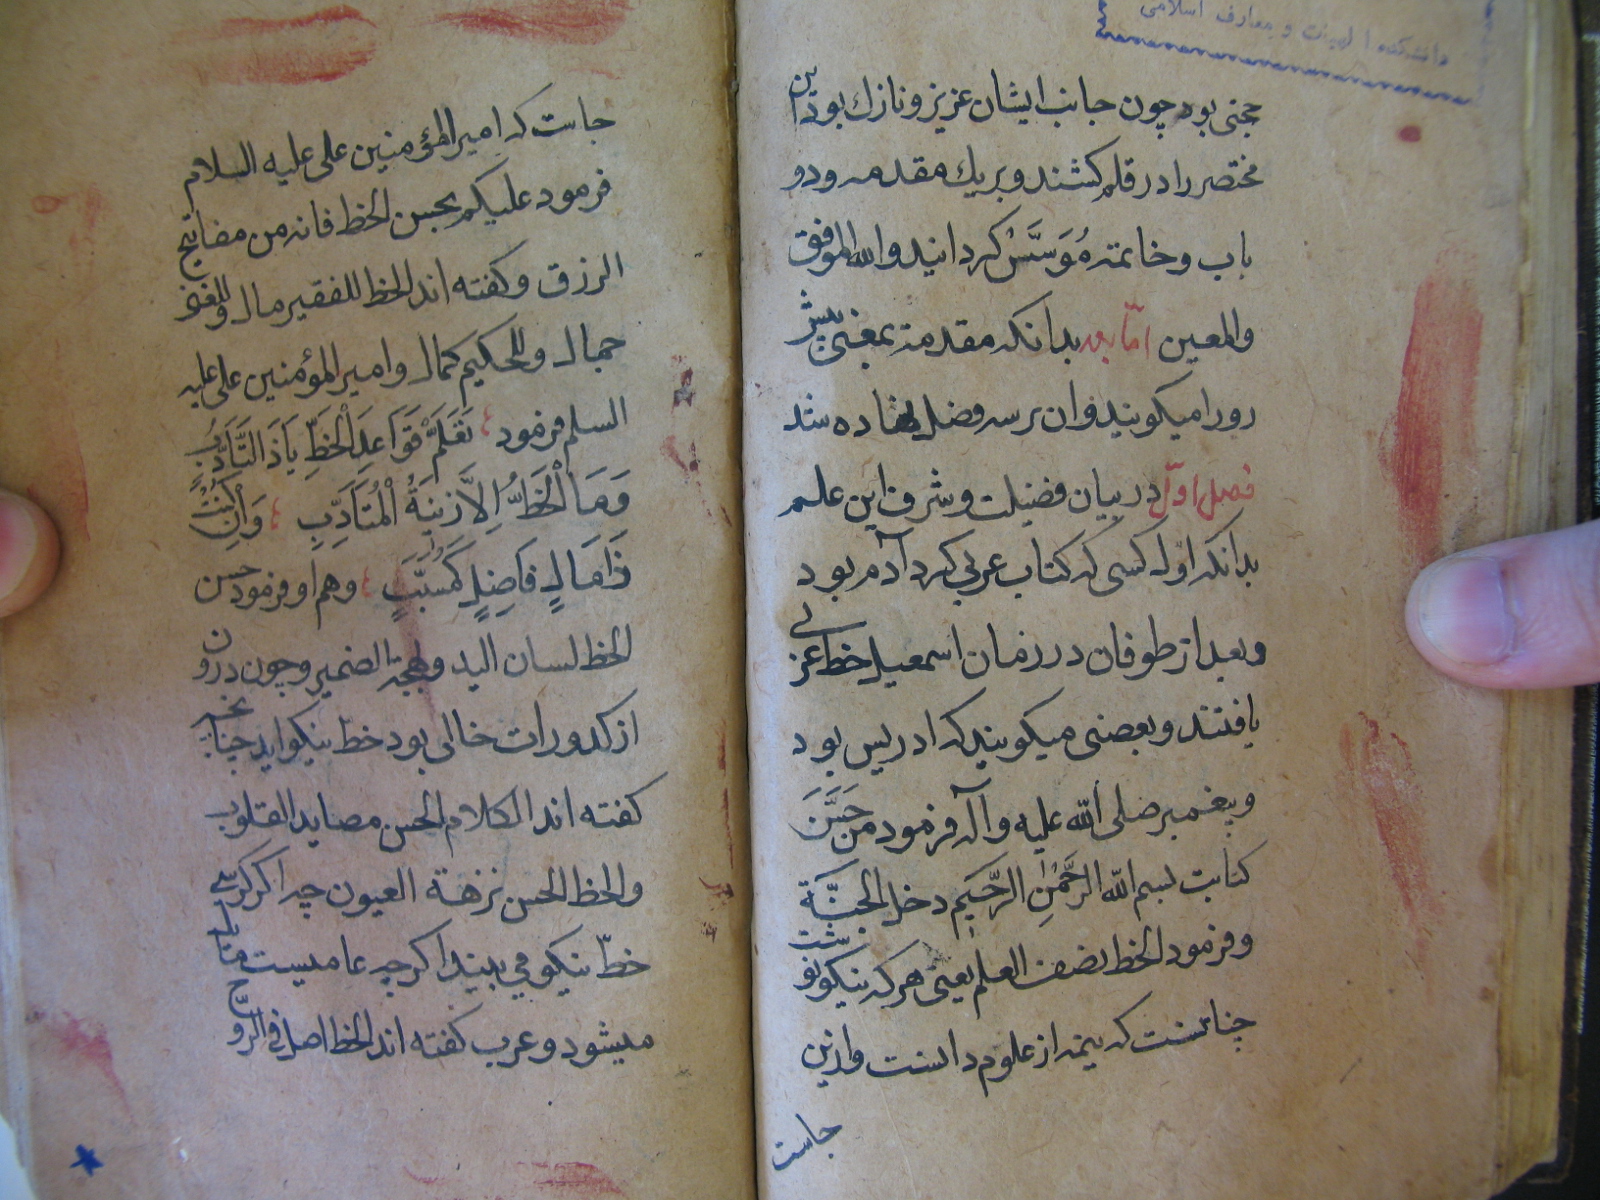 دانشکده الهیات و معارف اسلامی
جتی بود چون جانب ایشان عزیز و نازك بود این
مختصر را در قلم کشند و بر یك مقدمه و دو
باب و خاتمه مُوَسَّسْ کردانید و الله الموفق
والمعین امّا بعد بدانکه مقدمه بمعنی پیش
رو را میکویند و ان بر سه فصل نهاده شد
فصل اوّل در بیان فضیلت و شرف این علم
بدانکه اول کسی که کتاب عربی کرد آدم بود
و بعد از طوفان در زمان اسمعیل خط عربی
یافتند و بعضی میکویند که ادریس بود
و پیغمبر صلی الله علیه و آله فرمود من حَسَّنَ
کتابت بسم الله الرَّحْمٰنِ الرَّحیَم دخل الجنَّة
و فرمود الخط نصف العلم یعنی هر که نیکو نوشت
چنانست که نیمه از علوم دانست و ازین
جاست
جاست که امیر المؤمنین علی علیه السلام
فرمود علیکم بحسن الخط فانه من مفاتیح
الرزق و کفته اند الخط للفقیر مال و للغنی
جمال و للحکیم کمال و امیر المؤمنین علی علیه
السلم فرمود تَعَلَّمْ قَوَاعِدَ الْخَطِّ یَا ذَا التَّأَدُّبِ
وَمَا الْخَطُّ اِلاَّ زینَةُ الْمُتَأَدِّبِ وَاِنْ کُنْتَ
ذَا مَالٍ فَاضِلٍ و هم او فرمود حسن
الخط لسان الید و بهجة الضمیر و چون درون
از کدورات خالی بود خط نیکو اید چنانچه
کفته اند الکلام الحسن مصاید القلوب
والخط الحسن نزهة العیون چه اکر کسی
خطّ نیکو می بیند اکرچه عامیست
میشود و عرب کفته اند الخط اصل فی الروح